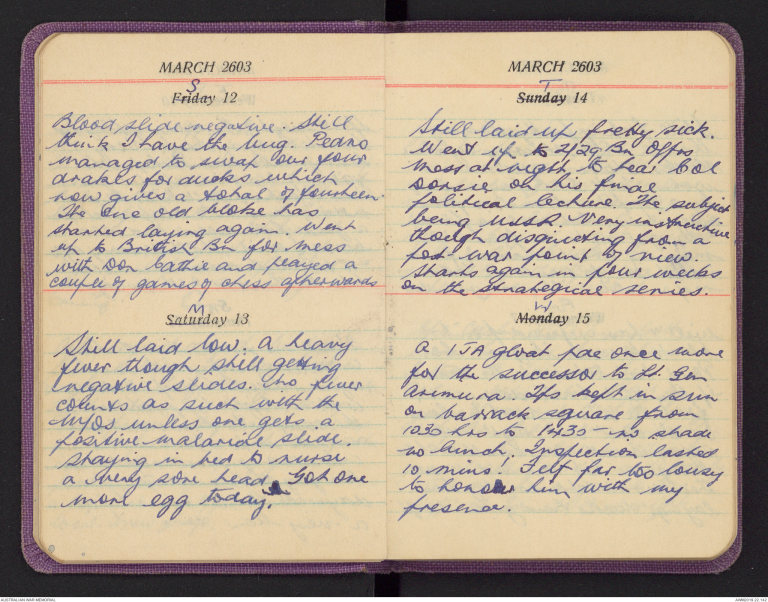 MARCH 2603
S
Friday 12
Blood slide negative. Still
think I have the bug. Pedro
managed to swap our four
drakes for ducks which
now gives a total of fourteen.
The one old bloke has
started laying again. Went
up to British Bn for mess
with Don Cathie and played a
couple of games of chess afterwards
M
Saturday 13
Still laid low. A heavy
fever though still getting
negative slides. No fever
counts as such with the
M/Os unless one gets a
positive malarial slide.
Staying in bed to nurse
a very sore head. Got one
more egg today.
MARCH 2603
T
Sunday 14
Still laid up pretty sick.
Went up to 2/29 Bn Offrs
mess at night to hear Col
on his final
political lecture. The subject
being USSR very instructive
though disquieting from a
post war point of view.
Starts again in four weeks
on the strategical series.
W
Monday 15
A IJA gloat pde once more
for the successor to Lt. Gen
Arimura. Tps kept in sun
on barrack square from
1030 hrs to 1430 – no shade
no lunch. Inspection lasted
10 mins! Felt far too lousy
to honour him with my
presence.
AUSTRALIAN WAR MEMORIAL